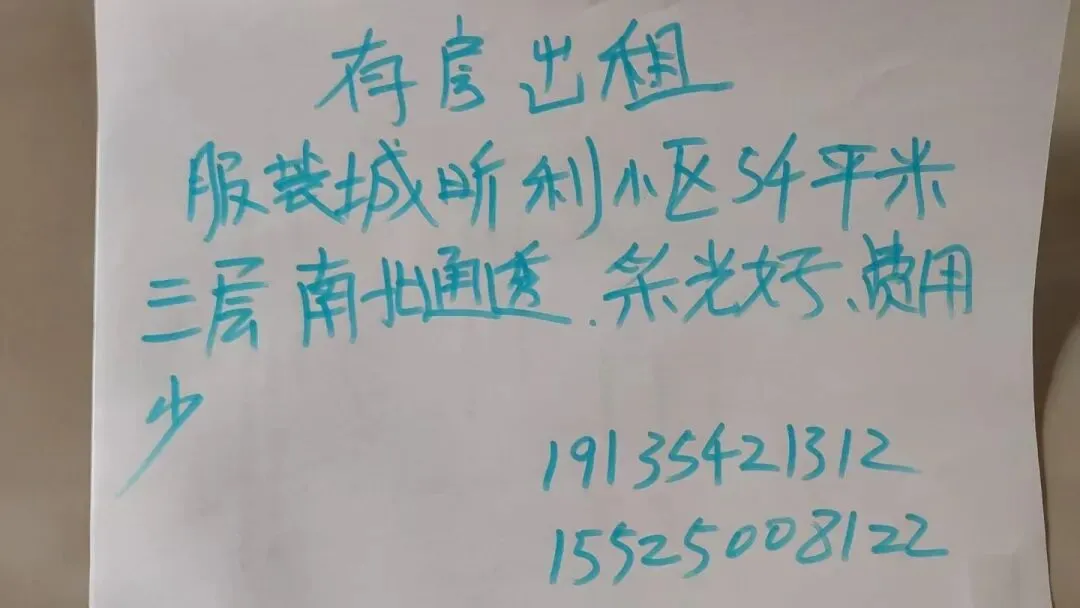 有房出租
服装城昕利小区54平米
三层南北通透.采光好、费用
少
19135421312
15525008122